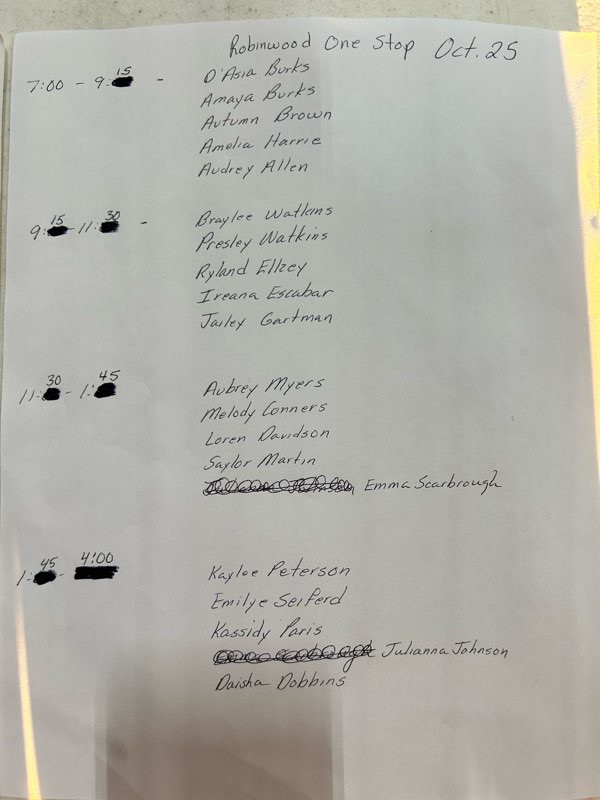 Robinwood One Stop Oct. 25
7:00 - 9:15 - D'Asia Burks
Amaya Burks
Autumn Brown
Amelia Harrie
Audrey Allen
9:15 - 11:30 - Braylee Watkins
Presley Watkins
Ryland Ellzey
Ireana Escabar
Jailey Gartman
11:30 - 1:45 Aubrey Myers
Melody Conners
Loren Davidson
Saylor Martin
Emma Scarbrough
1:45 - 4:00 Kaylee Peterson
Emilye Seiferd
Kassidy Paris
Julianna Johnson
Daisha Dobbins